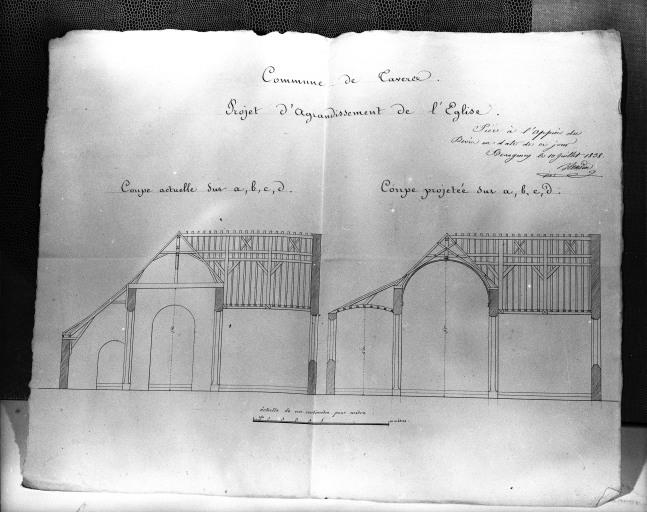 Commune de Taverez.
Projet d'Agrandissement de l'Eglise.
Pièce à l'appui du
Devis en date de ce jour
le 10 Juillet 1838.
Coupe actuelle sur a, b, c, d.
Coupe projetée sur a, b, c, d.
échelle de un centimètre pour mètre
mètres